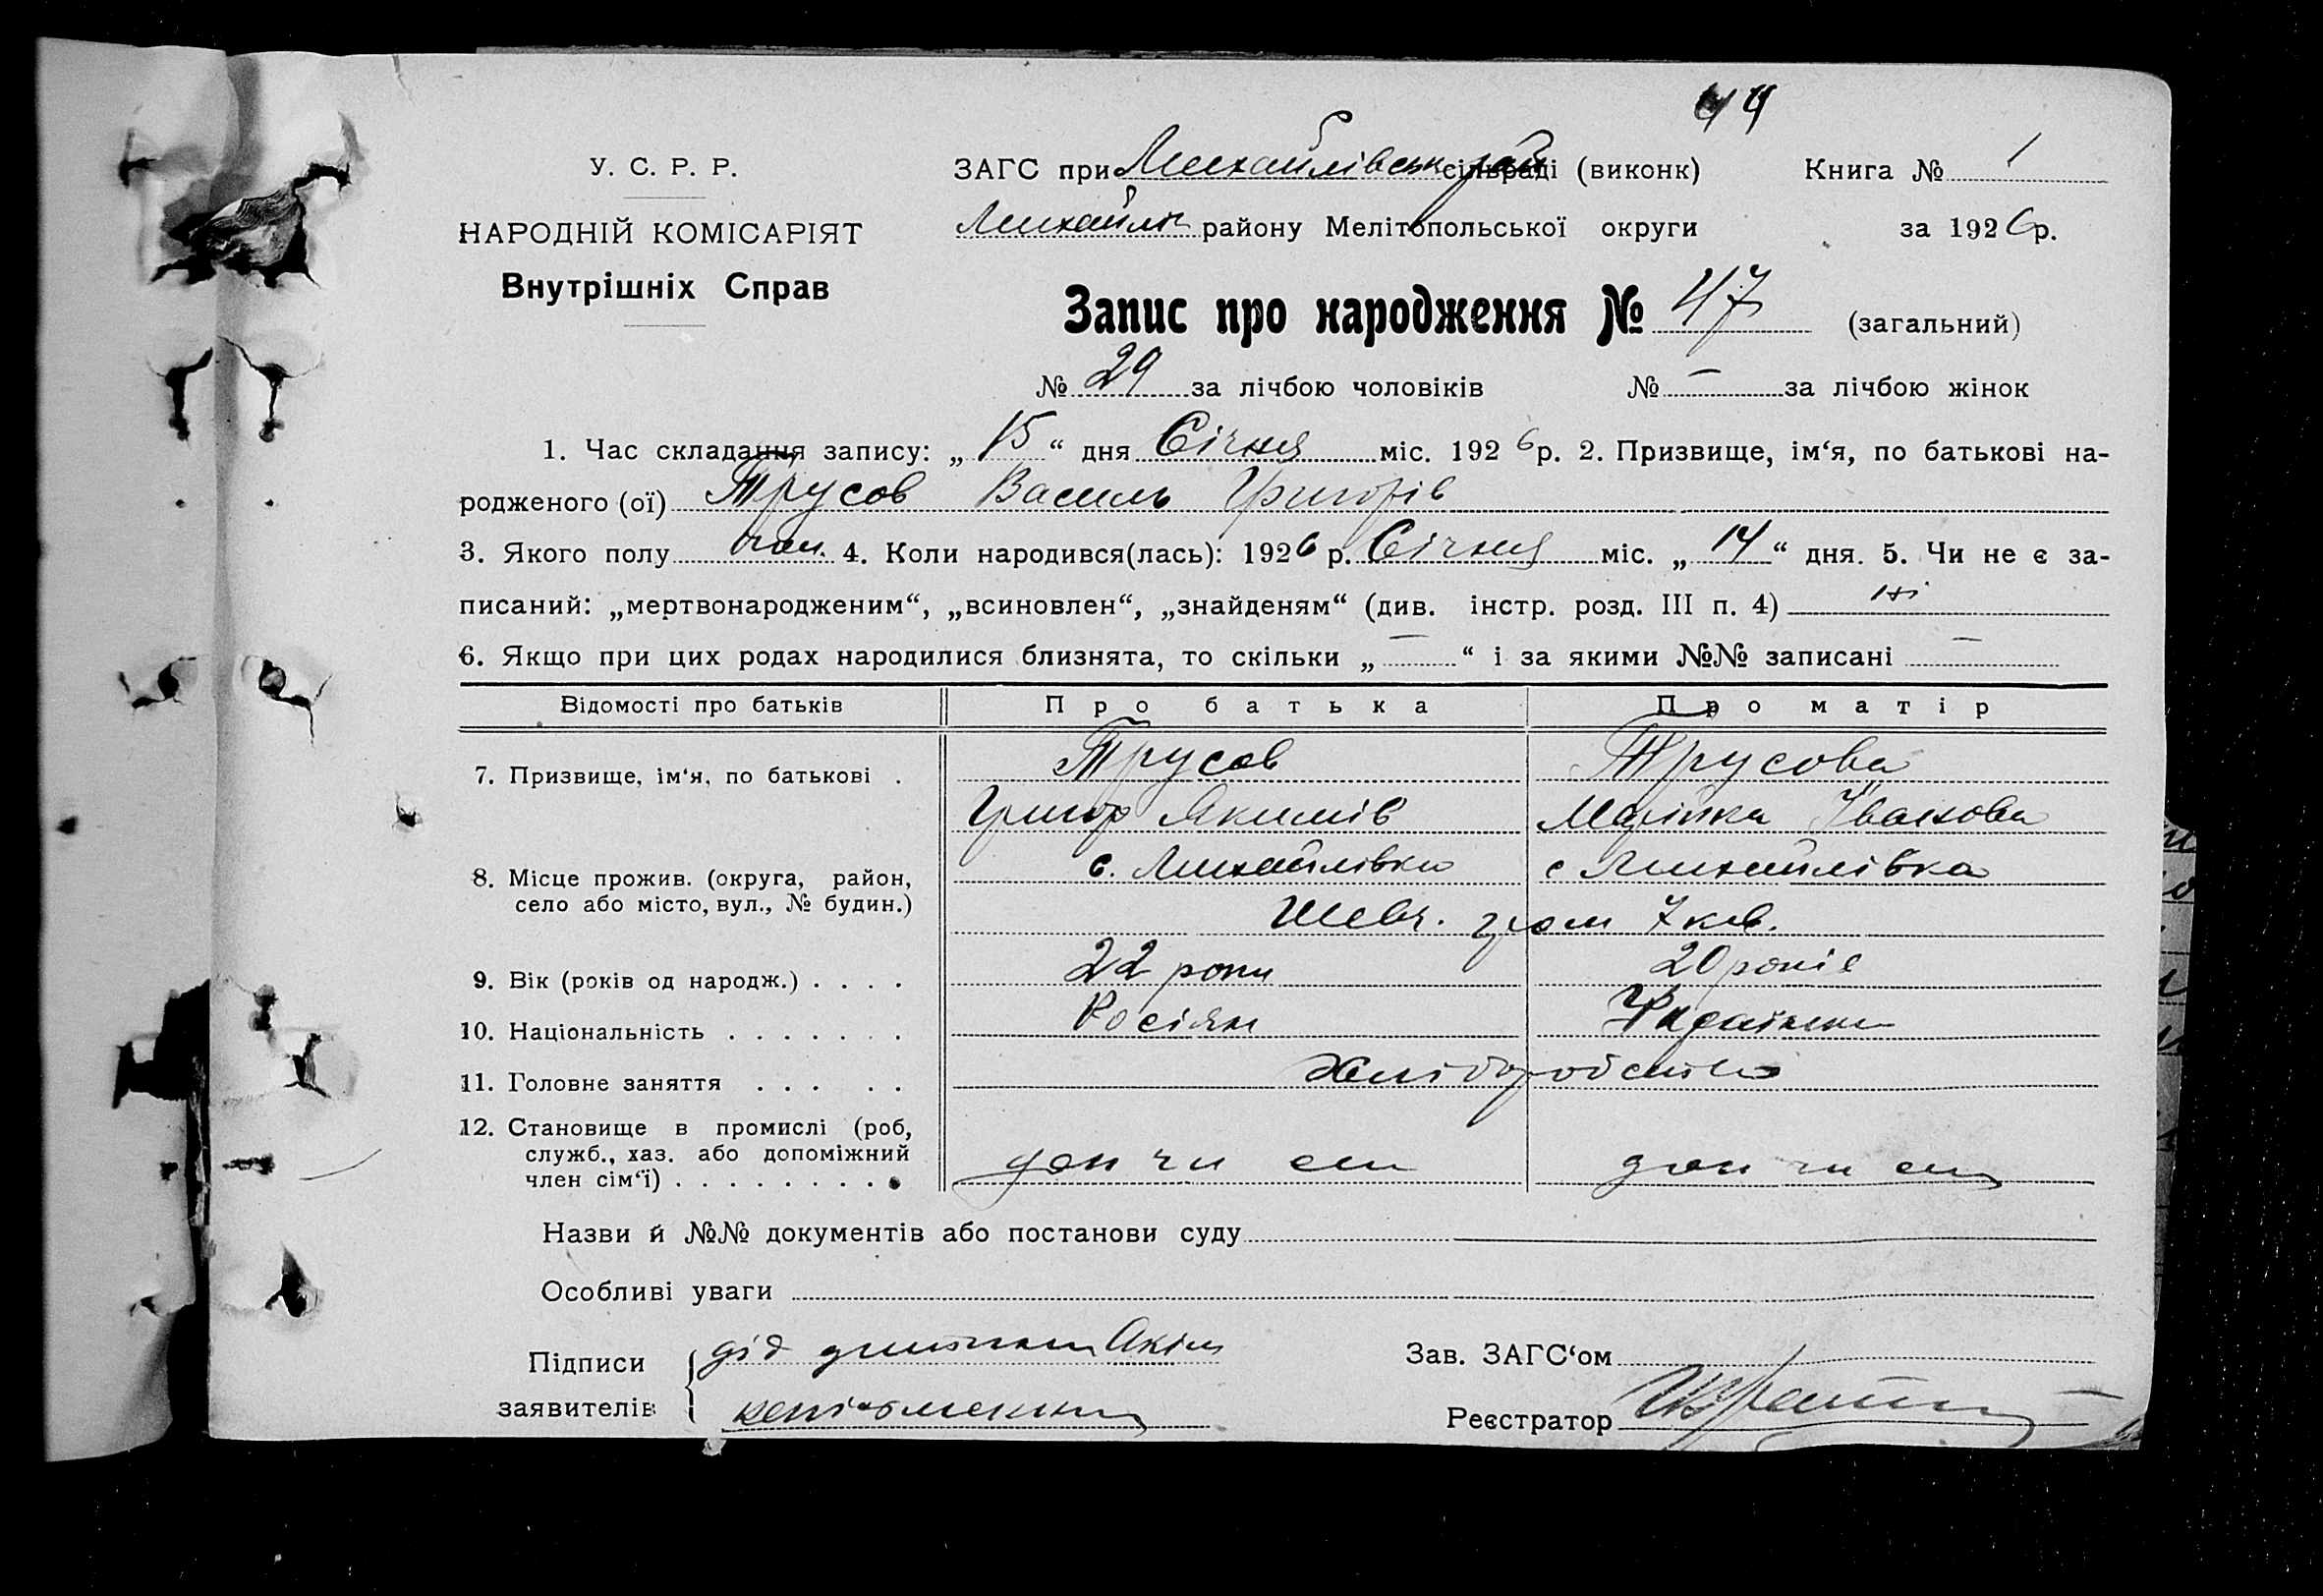 44
У. С. Р. Р.
НАРОДНІЙ КОМІСАРІЯТ
Внутрішніх Справ
ЗАГС при Михайлівськ рай сільраді (виконк) Книга № 1
Михайлів району Мелітопольської округи за 1926 р.
Запис про народження № 47 (загальний)
№ 29 за лічбою чоловіків № — за лічбою жінок
1. Час складання запису: „15“ дня Січня міс. 1926 р. 2. Призвище, ім‘я, по батькові на-
родженого (ої) Трусов Василь Григорів
3. Якого полу чол. 4. Коли народився(лась): 1926 р. Січня міс. „14“ дня. 5. Чи не є за-
писаний: „мертвонародженим“, „всиновлен“, „знайденям“ (див. інстр. розд. III п. 4) ні
6. Якщо при цих родах народилися близнята, то скільки „—“ і за якими №№ записані —
Відомості про батьків Про батька Про матір
7. Призвище, ім‘я, по батькові . Трусов Трусова
Григор Якимів Марійка Іванова
8. Місце прожив. (округа, район, с. Михайлівка с Михайлівка
село або місто, вул., № будин.) Шевч. гром 7 кв.
9. Вік (років од народж.) . . . . 22 роки 20 років
10. Національність . . . . . . . Росіян Українка
11. Головне заняття . . . . . Хліборобство
12. Становище в промислі (роб,
служб., хаз. або допоміжний
член сім‘ї) . . . . . . . . . доп чл сім доп чл сім
Назви й №№ документів або постанови суду
Особливі уваги
Підписи дід дитини Акім Зав. ЗАГС‘ом
заявителів неписьменний Реєстратор